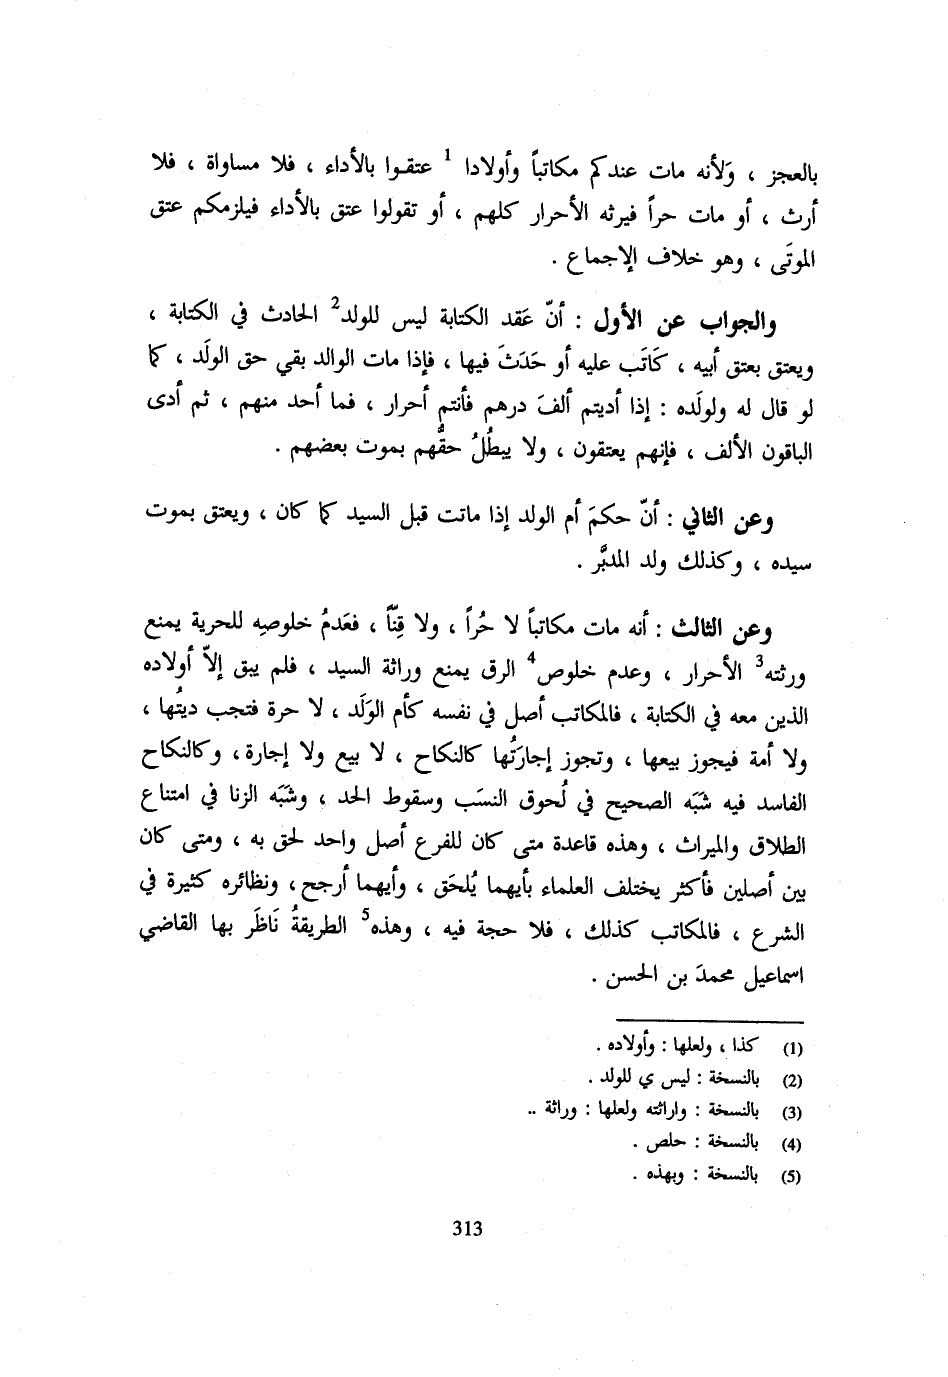 بالعجز ، وَلأنه مات عندكم مكاتباً وأولادا 1 عتقوا بالأداء ، فلا مساواة ، فلا
أرث ، أو مات حراً فيرثه الأحرار كلهم ، أو تقولوا عتق بالأداء فيلزمكم عتق
الموتَى ، وهو خلاف الإجماع .
والجواب عن الأول : أنّ عَقد الكتابة ليس للولد2 الحادث في الكتابة ،
ويعتق بعتق أبيه ، كَاتَب عليه أو حَدَثَ فيها ، فإذا مات الوالد بقي حق الولَد ، كما
لو قال له ولولَده : إذا أديتم ألفَ درهم فأنتم أحرار ، فما أحد منهم ، ثم أدى
الباقون الألف ، فإنهم يعتقون ، ولا يبطُلُ حقُّهم بموت بعضهم .
وعن الثاني : أنّ حكمَ أم الولد إذا ماتت قبل السيد كما كان ، ويعتق بموت
سيده ، وكذلك ولد المدبَّر .
وعن الثالث : أنه مات مكاتباً لا حُراً ، ولا قِنّاً ، فعَدمُ خلوصِه للحرية يمنع
ورثته3 الأحرار ، وعدم خلوص4 الرق يمنع وراثة السيد ، فلم يبق إلاّ أولاده
الذين معه في الكتابة ، فالمكاتب أصل في نفسه كأم الوَلَد ، لا حرة فتجب ديتُها ،
ولا أمة فيجوز بيعها ، وتجوز إجارَتُها كالنكاح ، لا بيع ولا إجارة، وكالنكاح
الفاسد فيه شبَه الصحيح في لُحوق النسَب وسقوط الحد ، وشبَه الزنا في امتناع
الطلاق والميراث ، وهذه قاعدة متى كان للفرع أصل واحد لحق به ، ومتى كان
بين أصلين فأكثر يختلف العلماء بأيهما يُلحَق ، وأيهما أرجح، ونظائره كثيرة في
الشرع ، فالمكاتب كذلك ، فلا حجة فيه ، وهذه5 الطريقةُ نَاظَر بها القاضي
اسماعيل محمدَ بن الحسن .
(1) كذا ، ولعلها : وأولاده .
(2) بالنسخة : ليس ي للولد .
(3) بالنسخة : واراثته ولعلها : وراثة ..
(4) بالنسخة : حلص .
(5) بالنسخة : وبهذه .
313